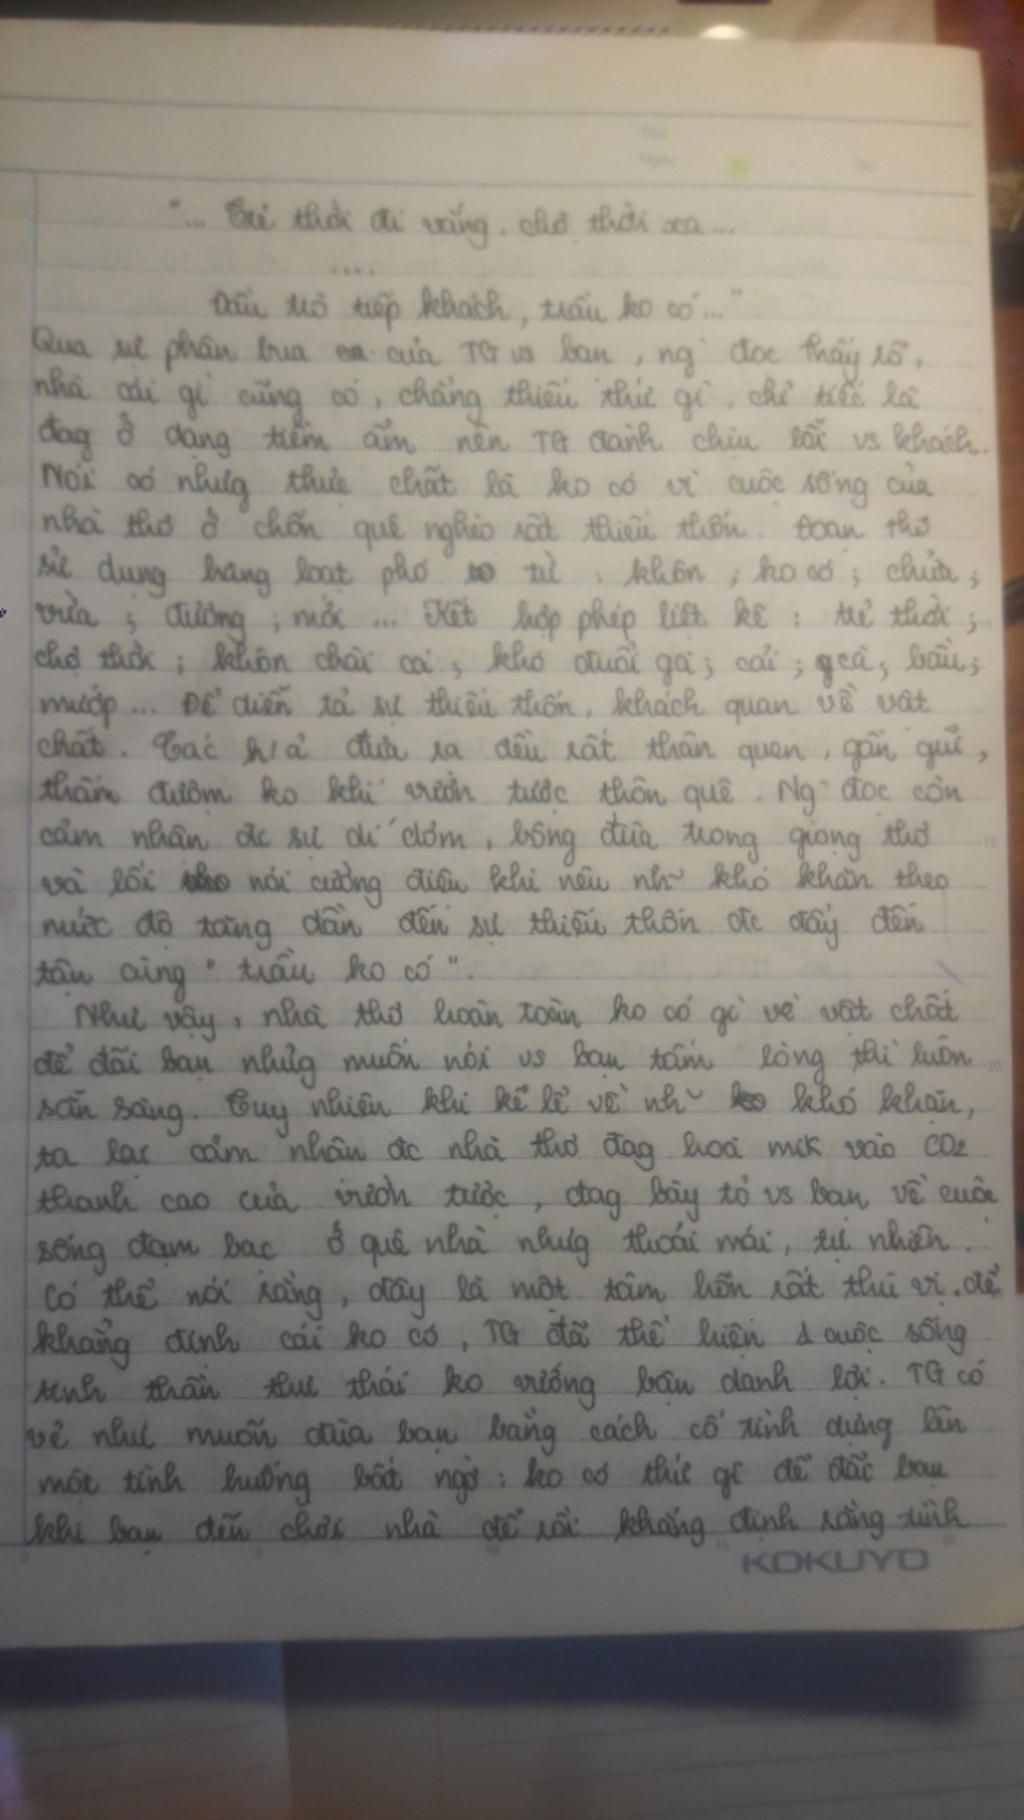 "... Trẻ thời đi vắng, chợ thời xa...
....
Đầu trò tiếp khách, trầu ko có..."
Qua sự phân bua của TG vs bạn, ng` đọc thấy rõ,
nhà cái gì cũng có, chẳng thiếu thứ gì, chỉ tiếc là
đag ở dạng tiềm ẩm nên TG đành chịu lỗi vs khách.
Nói có nhưg thực chất là ko có vì cuộc sống của
nhà thơ ở chốn quê nghèo rất thiếu thốn. Đoạn thơ
sử dụng hàng loạt phó từ: khôn; ko có; chửa;
vừa; đương; mới ... Kết hợp phép liệt kê: trẻ thời;
chợ thời; khôn chài cá; khó đuổi gà; cải; cà; bầu;
mướp... Để diễn tả sự thiếu thốn, khách quan về vật
chất. Các h/ả đưa ra đều rất thân quen, gần gũi,
thấm đượm ko khí vườn tược thôn quê. Ng` đọc còn
cảm nhận đc sự dí dỏm, bông đùa trong giọng thơ
và lối nói cường điệu khi nêu nh~ khó khăn theo
mức độ tăng dần đến sự thiếu thốn đc đẩy đến
tận cùng "trầu ko có".
Như vậy, nhà thơ hoàn toàn ko có gì về vật chất
để đãi bạn nhưg muốn nói vs bạn tấm lòng thì luôn
sẵn sàng. Tuy nhiên khi kể lể về nh~ khó khăn,
ta lại cảm nhận đc nhà thơ đag hoà mik vào CO2
thanh cao của vườn tược, đag bày tỏ vs bạn về cuộc
sống đạm bạc ở quê nhà nhưg thoải mái, tự nhiên.
Có thể nói rằng, đây là một tâm hồn rất thú vị. để
khẳng định cái ko có, TG đã thể hiện 1 cuộc sống
tinh thần thư thái ko vướng bận danh lợi. TG có
vẻ như muốn đùa bạn bằng cách cố tình dựng lên
một tình huống bất ngờ: ko có thứ gì để đãi bạn
khi bạn đến chơi nhà để rồi khẳng định rằng tình
KOKUYO